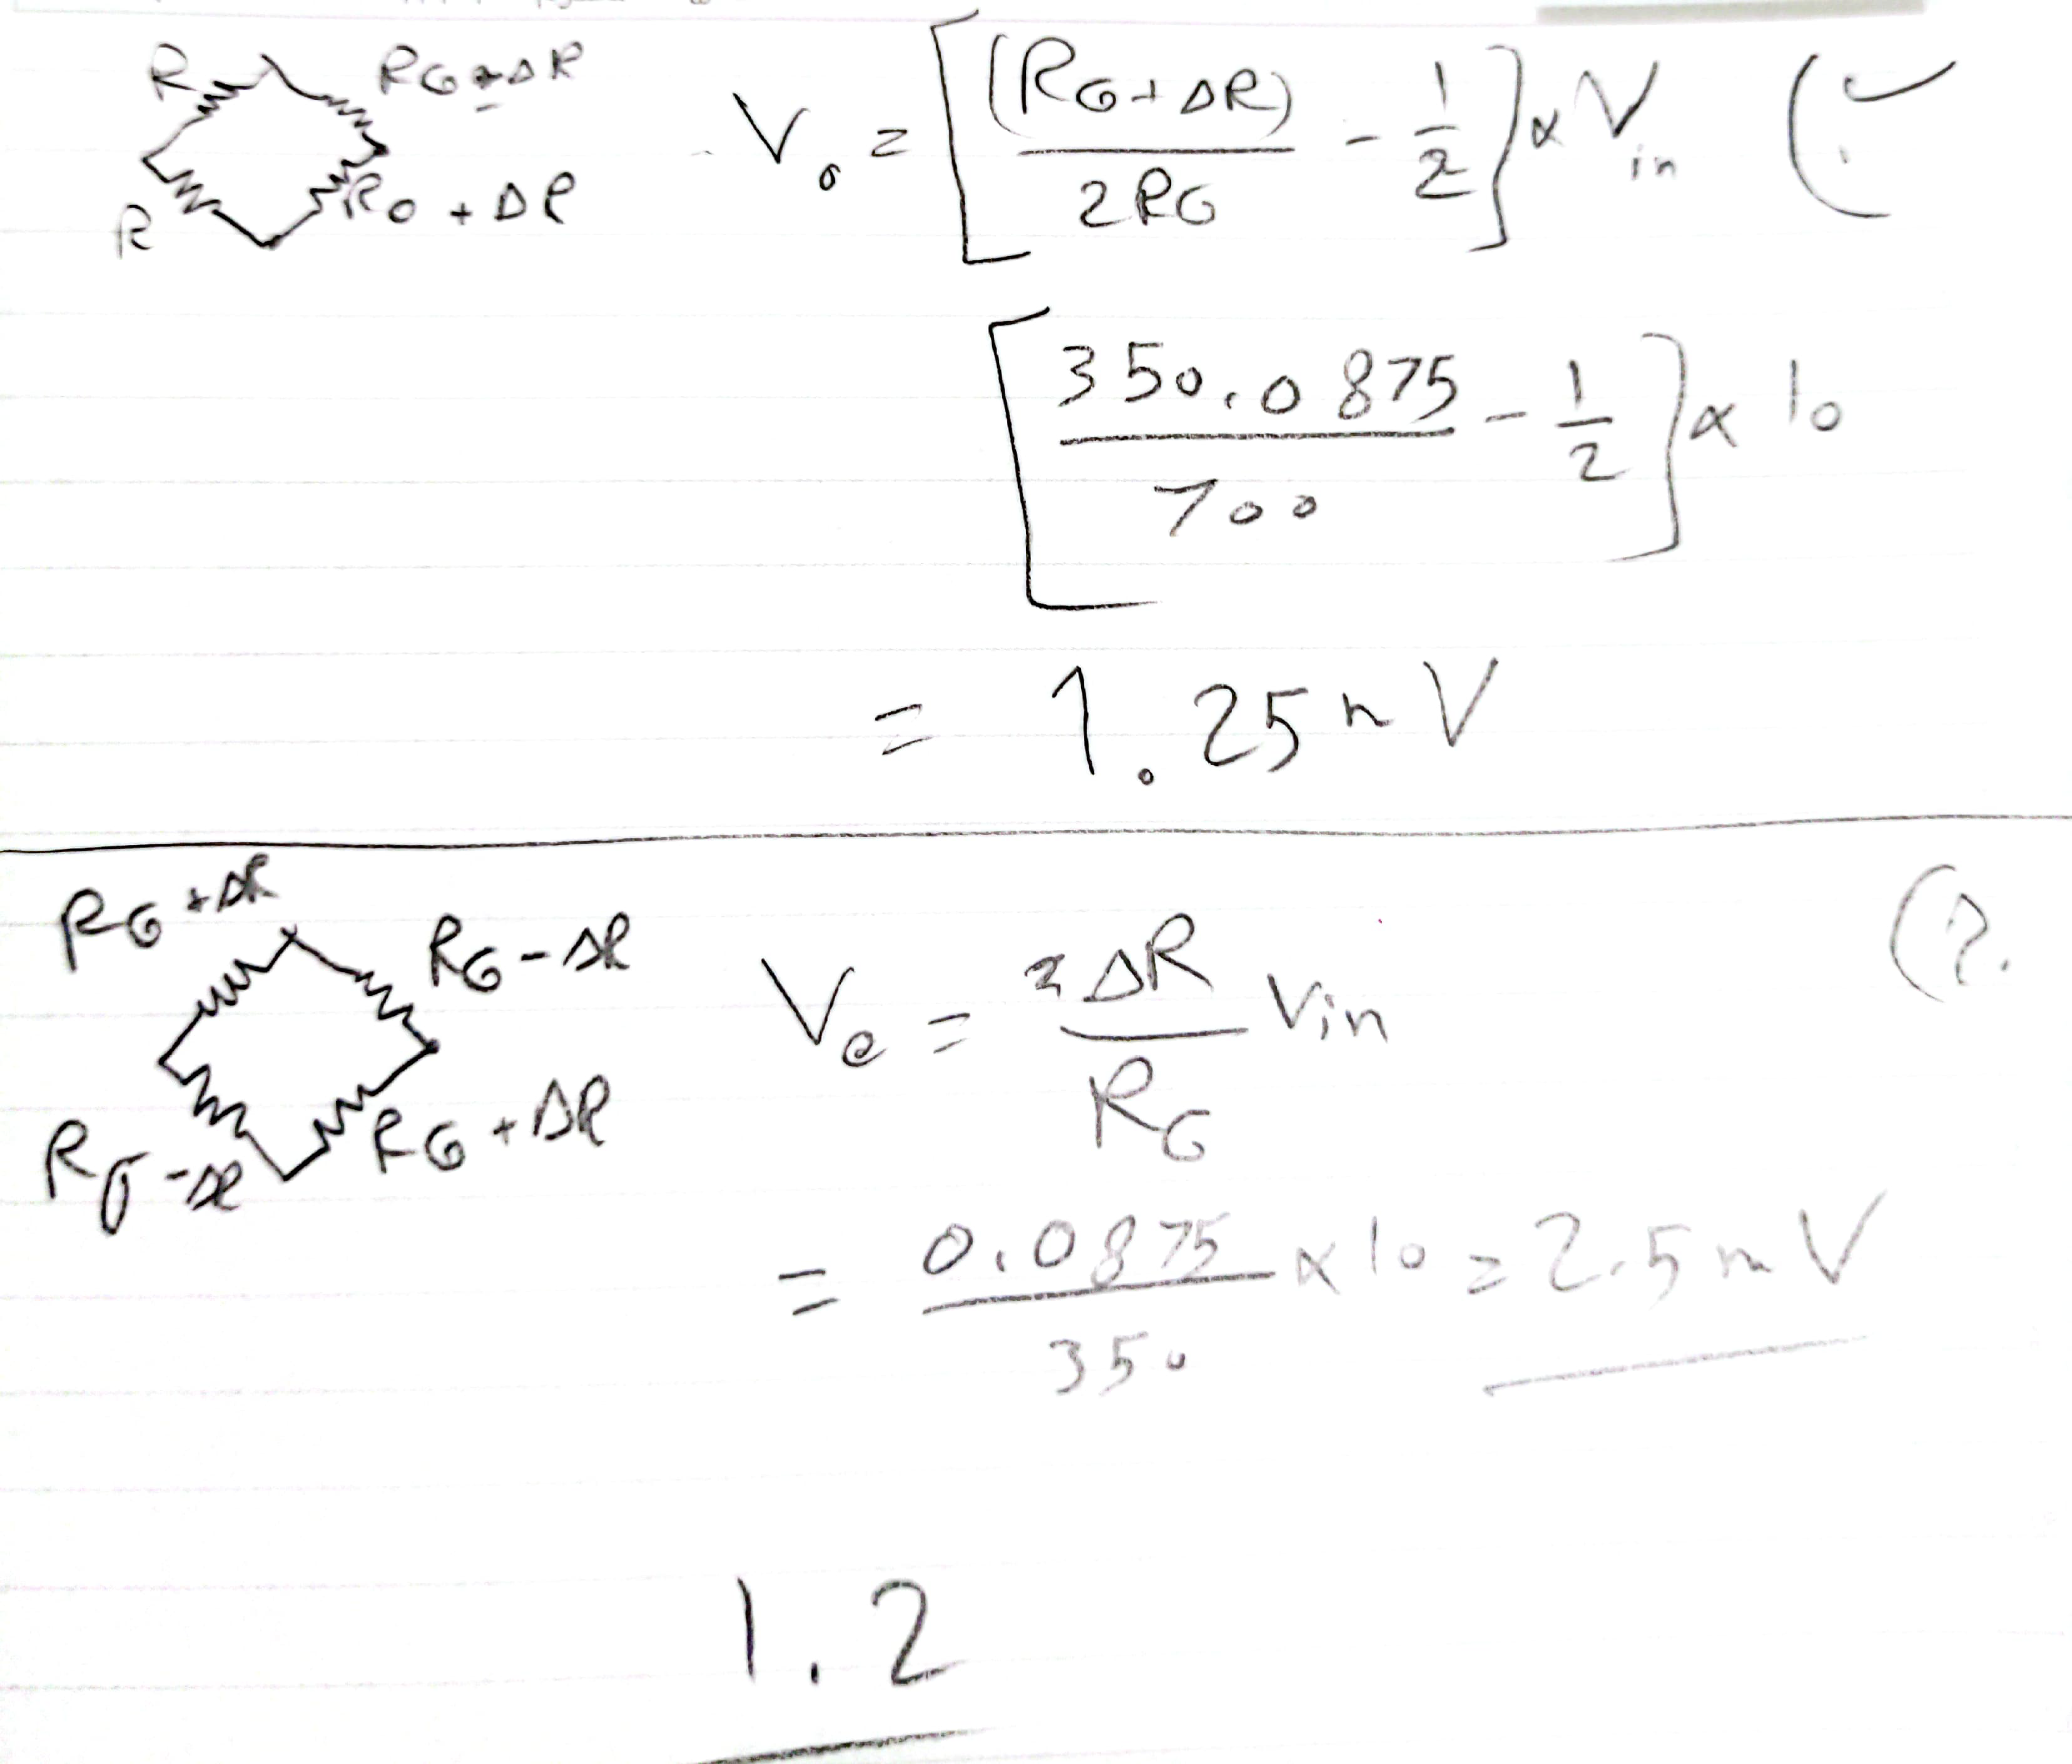 R RG+ΔR
R RG+ΔR
V₀ = [(RG+ΔR)/2RG - 1/2] × Vin
[350.0875/700 - 1/2] × 10
= 1.25 m V
RG+ΔR RG-ΔR
RG-ΔR RG+ΔR
V₀ = 2ΔR/RG Vin
= 0.0875/350 × 10 = 2.5 m V
1.2